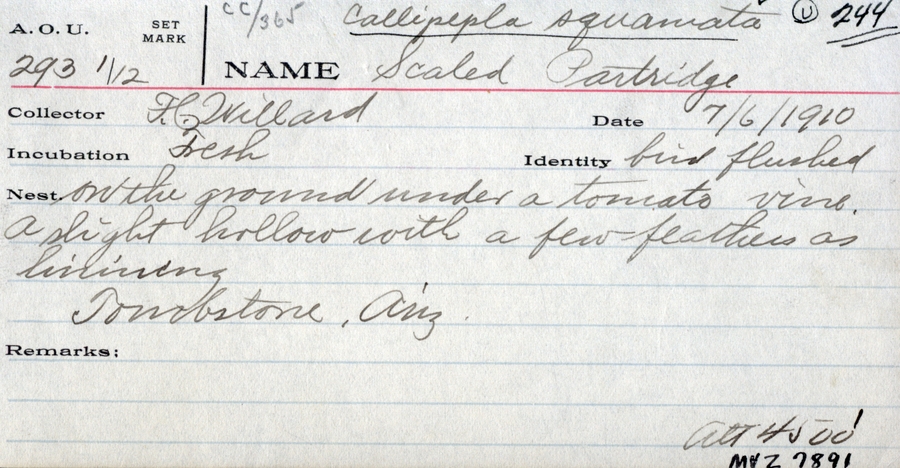 CC/365 Callipepla squamata U 244
A.O.U. SET MARK
293 1/12 NAME Scaled Partridge
Collector F.C. Willard Date 7/6/1910
Incubation Fresh Identity bird flushed
Nest. on the ground under a tomato vine.
A slight hollow with a few feathers as
linining
Tombstone, Ariz.
Remarks:
Alt 4500'
MVZ 7891